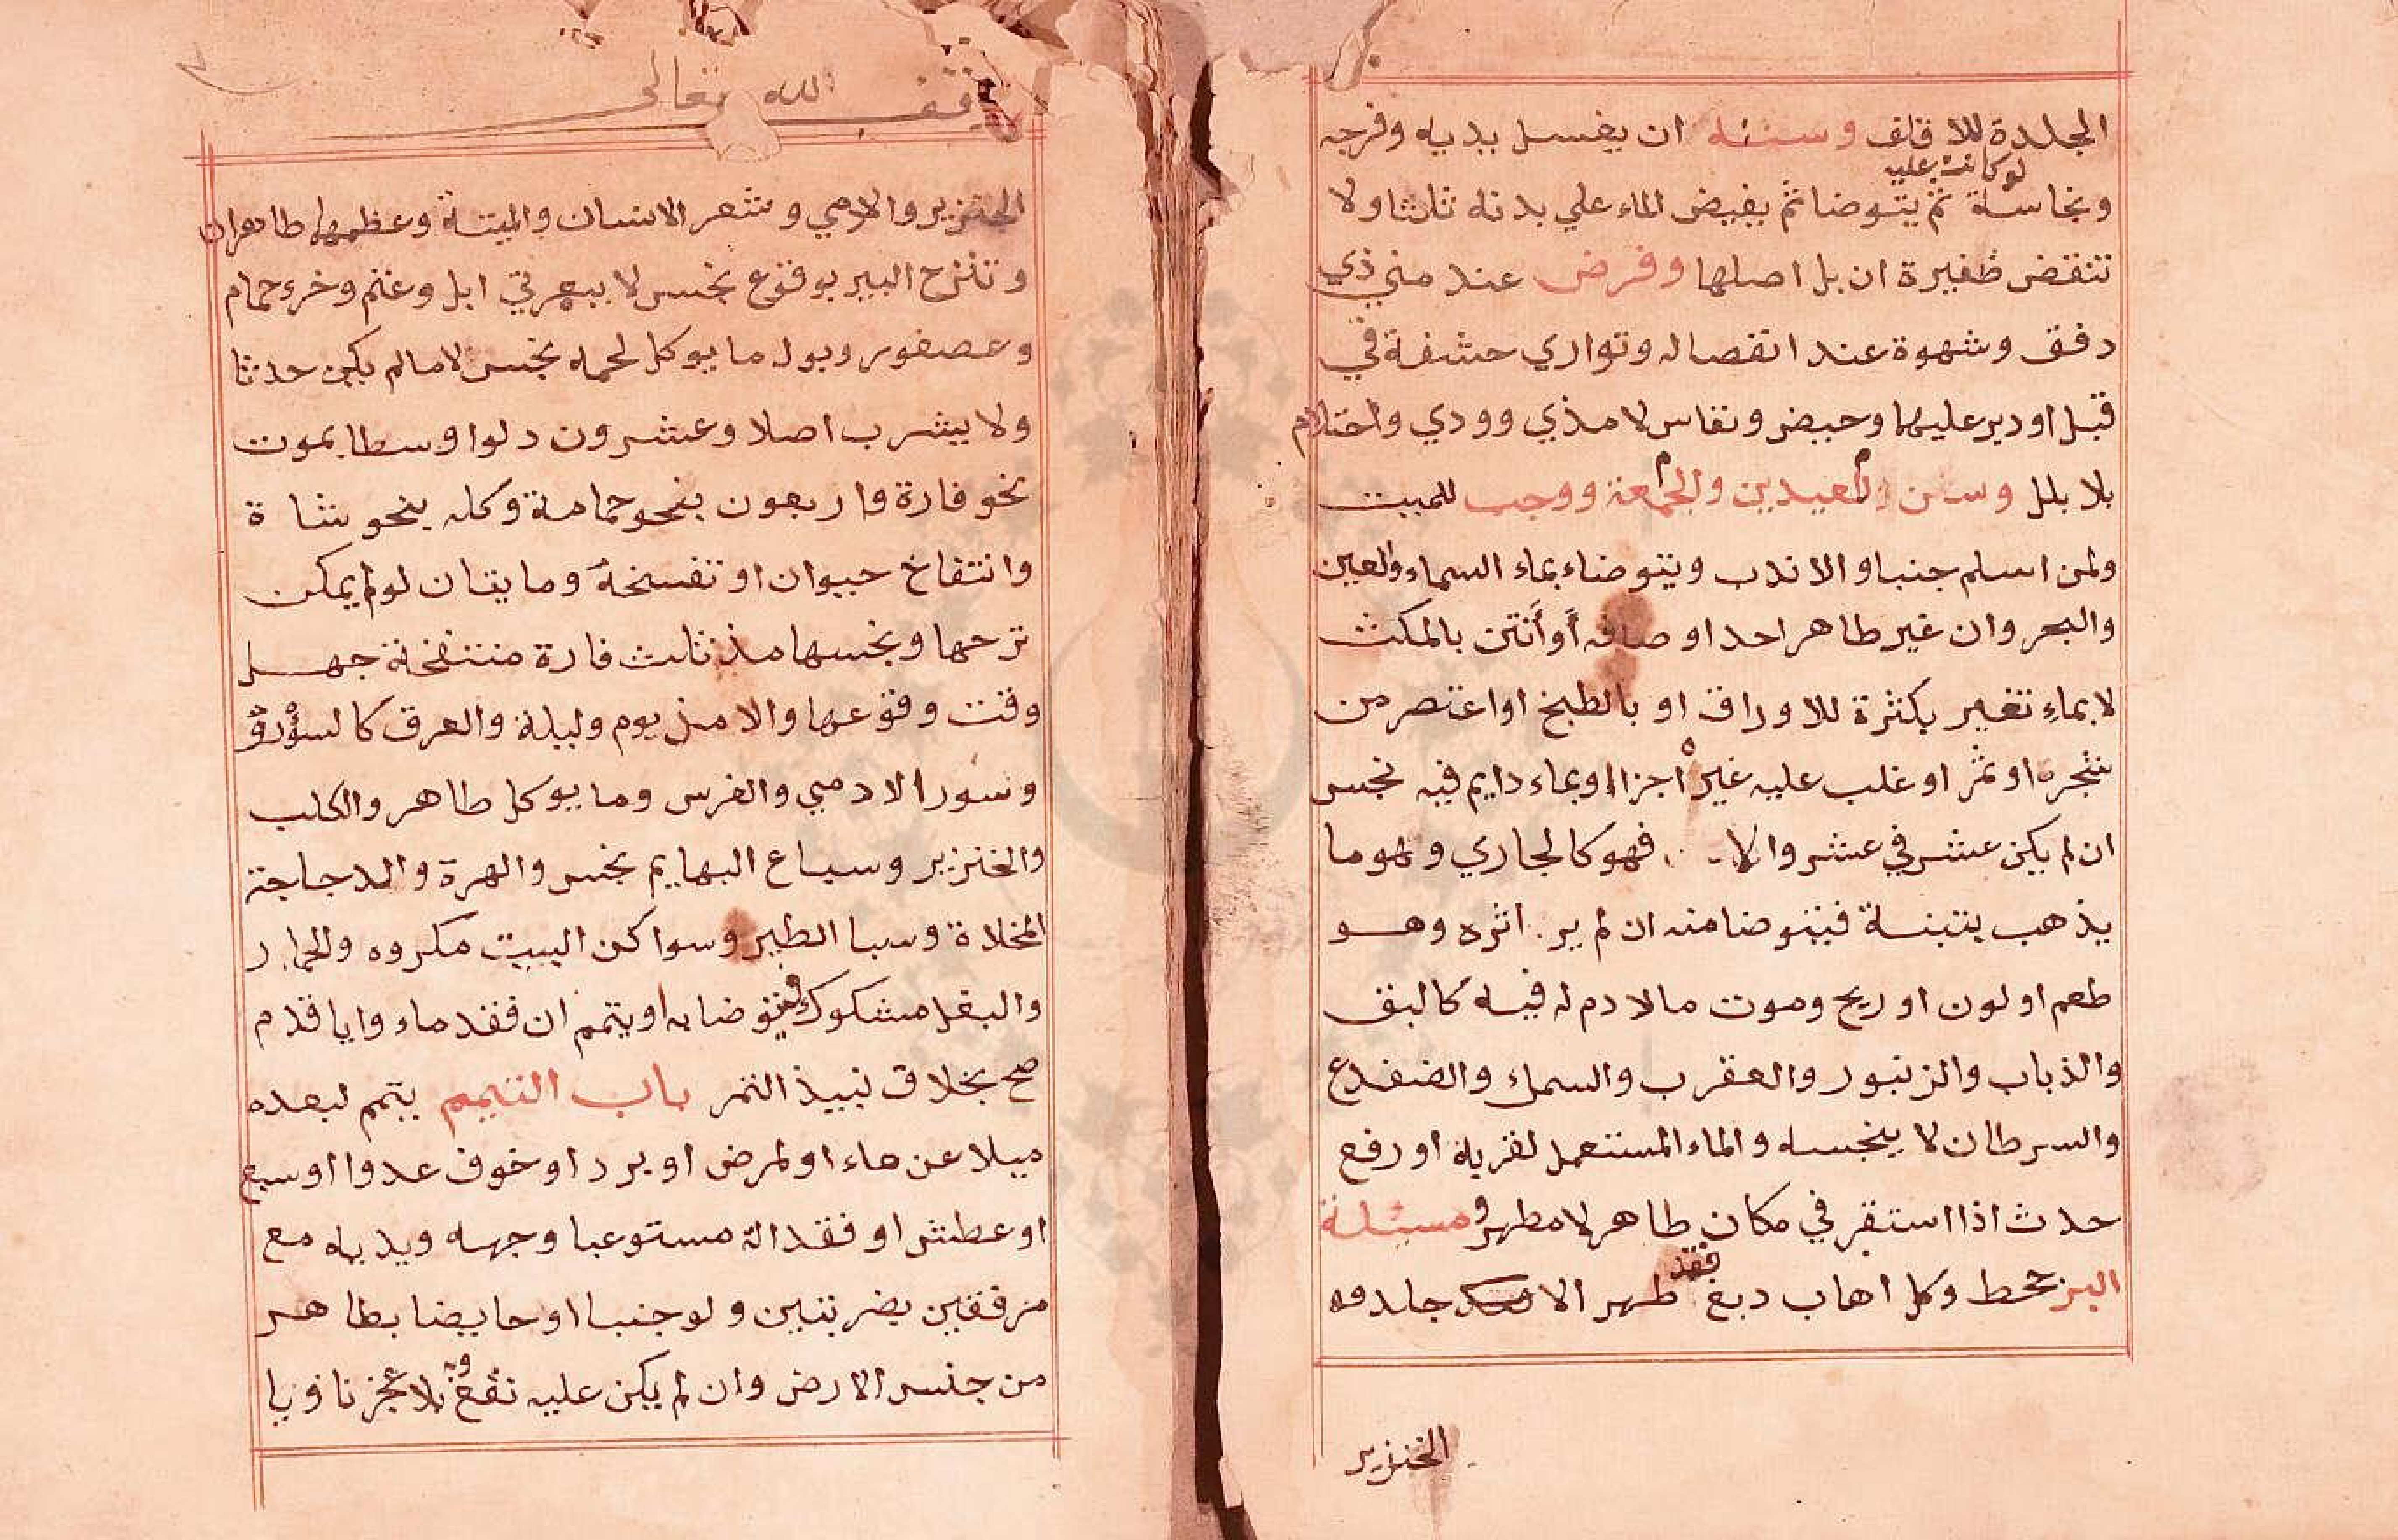 الجلدة للاقلف وسننه ان يغسل يديه وفرجه
لو كانت عليه
ونجاسة ثم يتوضا ثم يفيض الماء علي بدنه ثلثا ولا
تنقض ظفيرة ان بل اصلها وفرض عند مني ذي
دفق وشهوة عند انفصاله وتواري حشفة في
قبل او دبر عليهما وحيض ونفاس لا مذي وودي واحتلام
بلا بلل وسن للعيدين والجمعة ووجب للميت
ولمن اسلم جنبا والا ندب ويتوضاء بماء السماء والعين
والبحر وان غير طاهر احد اوصافه أو أنتن بالمكث
لا بماء تغير بكثرة للاوراق او بالطبخ او اعتصر من
شجره او ثمر او غلب عليه غيره اجزاا وبماء دايم فيه نجس
ان لم يكن عشر في عشر والا فهو كالجاري وهو ما
يذهب بتبنة فيتوضا منه ان لم ير اثره وهو
طعم او لون او ريح وموت ما لا دم له فيه كالبق
والذباب والزنبور والعقرب والسمك والضفدع
والسرطان لا ينجسه والماء المستعمل لقربة او رفع
حدث اذا استقر في مكان طاهر لا مطهر ومسئلة
البر جحط وكل اهاب دبغ فقد طهر الا جلد
الخنزير
الله تعالى
الخنزير والادمي وشعر الانسان والميتة وعظمهما طاهران
وتنزح البير بوقوع نجس لا ببعرتي ابل وغنم وخرو حمام
وعصفور وبول ما يوكل لحمه نجس لا ما لم يكن حدثا
ولا يشرب اصلا وعشرون دلوا وسطا بموت
نحو فارة واربعون بنحو حمامة وكله بنحو شاة
وانتفاخ حيوان او تفسخه ومايتان لو لم يمكن
نزحها ونجسها مذ ثلث فارة منتفخة جهل
وقت وقوعها والا مذ يوم وليلة والعرق كالسؤر
وسور الادمي والفرس وما يوكل طاهر والكلب
والخنزير وسباع البهايم نجس والهرة والدجاجة
المخلاة وسبا الطير وسواكن البيت مكروه والحمار
والبغل مشكوك فيتوضا به او يتمم ان فقد ماء وايا قدم
صح بخلاف نبيذ التمر باب التيمم يتمم لبعده
ميلا عن ماء او لمرض او برد او خوف عدوا او سبع
او عطش او فقد الة مستوعبا وجهه ويديه مع
مرفقين بضربتين ولو جنبا او حايضا بطاهر
من جنس الارض وان لم يكن عليه نقع وبه بلا عجز ناويا